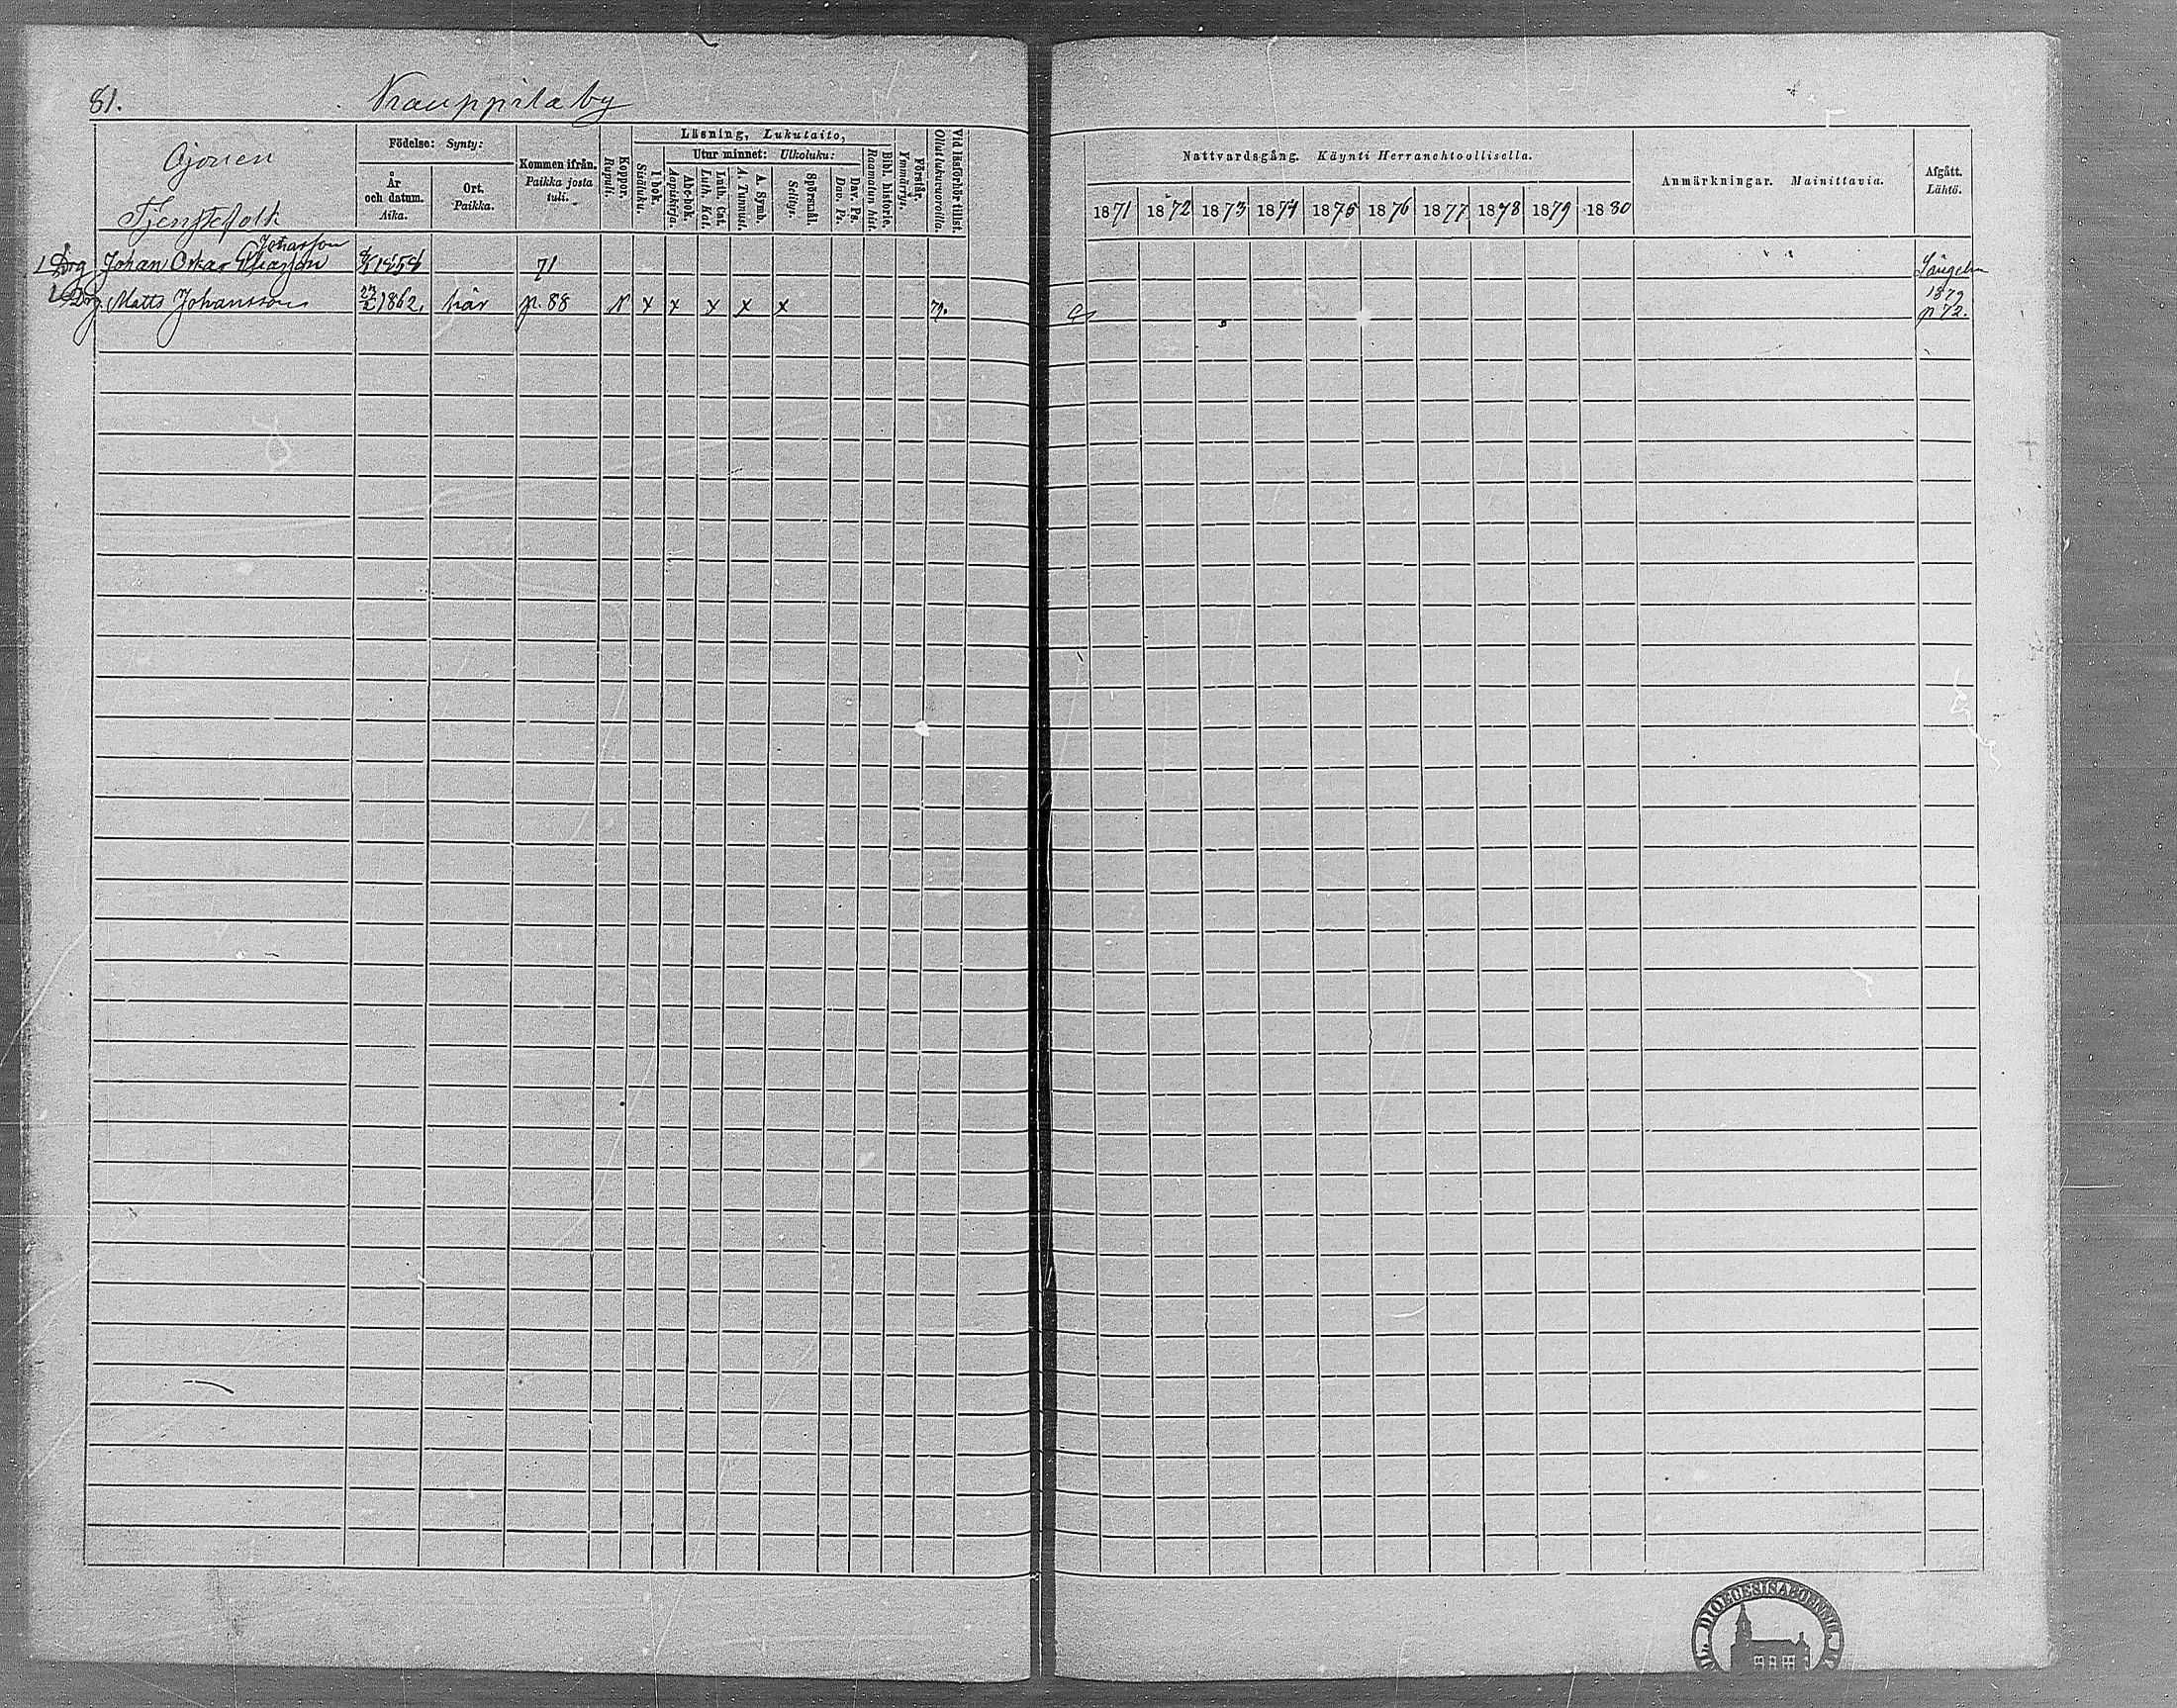 81.
Kauppila by
Ojonen
Tjenstefolk
Födelse: Synty:
År och datum. Aika.
Ort. Paikka.
Kommen ifrån. Paikka josta tuli.
Koppor. Rupuli.
Läsning, Lukutaito,
I bok. Sisäluku.
Utur minnet: Ulkoluku:
Abc-bok. Aapiskirja.
Luth. Cat. Luth. Kat.
A. Symb. A. Tunnust.
Spörsmål. Selitys.
Dav. Ps. Dav. Ps.
Bibl. historie. Raamatun hist.
Förstår. Ymmärrys.
Vid läsförhör tillst. Ollut lukuvuoroilla.
Nattvardsgång. Käynti Herranehtoollisella.
1871 1872 1873 1874 1875 1876 1877 1878 1879 1880
Anmärkningar. Mainittavia.
Afgått. Lähtö.
Johansson
Drg Johan Oskar 1854 71 Längelm
1879
Drg Matts Johansson 1862. här p. 88 x x x x x 79. p 72.
DIOECESIS ABOENSIS